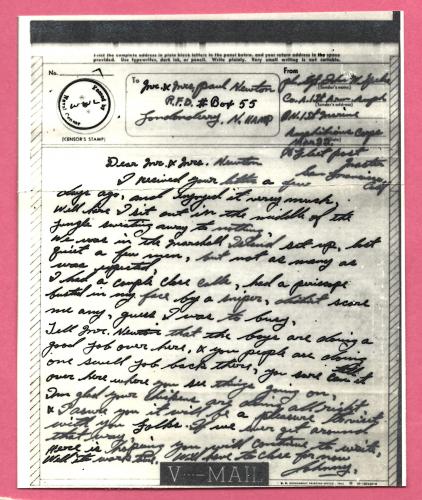 Print the complete address in plain block letters in the panel below, and your return address in the space
provided. Use typewriter, dark ink, or pencil. Write plainly. Very small writing is not suitable.
No.
To
From
Mr. & Mrs. Paul Newton
R.F.D. # Box 55
Londonderry, N. HAMP
(CENSOR'S STAMP)
Co. A. 1st Arm. Amph
(Sender's name)
(Sender's address)
Amphibious Corps
Fleet post
San Francisco
Calif
Dear Mr. & Mrs. Newton
I received your letter a few
days ago, and enjoyed it very much,
Well here I sit out in the middle of the
jungle sweating away to nothing,
We was in the Marshall Island set up, lost
quiet a few men, but not as many as
was expected,
I had a couple close calls, had a
busted in my face by a sniper, didnt scare
me any, guess I was to busy,
Tell Mr. Newton that the boys are doing a
good job over here, & you people are doing
one swell job back there, you sure can tell it
over here where you see things going on,
Im glad your chickens are doing all right
& I assure you it will be a pleasure to visit
with you folks. If we ever get around
that way.
Here is hoping you will continue to write,
Will have to close for now
Johnny,
V···-MAIL